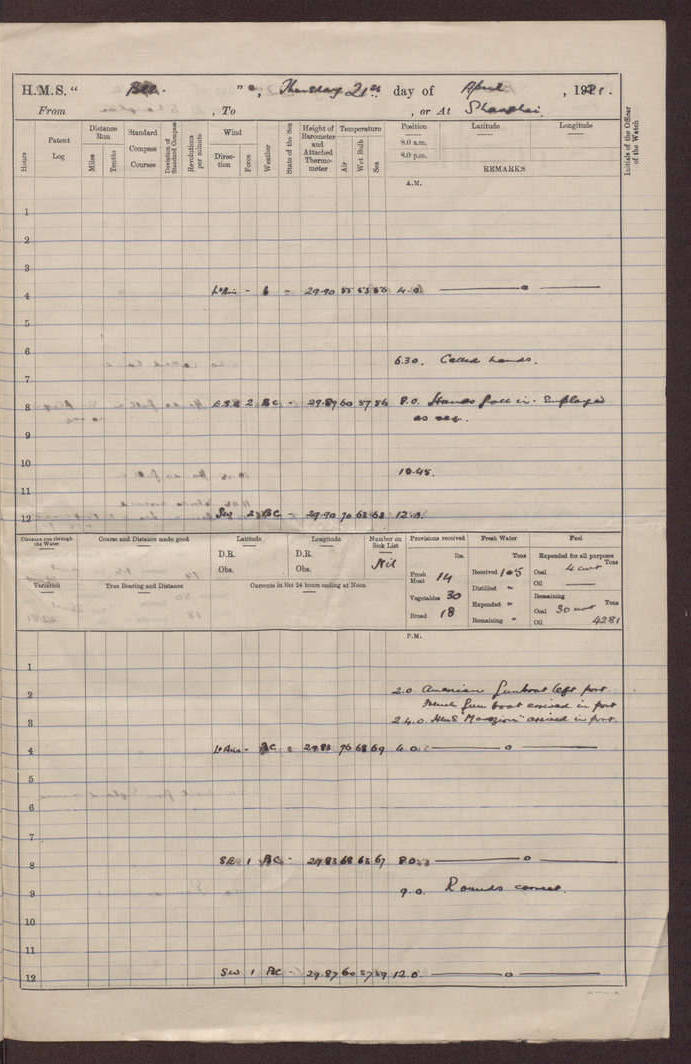 H.M.S. " Bee. ", Thursday 21st day of April, 1921.
From , To , or At Shanghai.
Hours
Patent Log
Distance Run
Miles
Tenths
Standard Compass Courses
Deviation of Standard Compass
Revolutions per minute
Wind
Direction
Force
Weather
State of the Sea
Height of Barometer and Attached Thermometer
Temperature
Air
Wet Bulb
Sea
Position
8.0 a.m.
8.0 p.m.
Latitude
Longitude
REMARKS
Initials of the Officer of the Watch
A.M.
1
2
3
4 Lt Airs - b - 29.90 55 53 56 4.0
5
6 6.30. Called hands.
7
8 E.S.E 2 BC - 29.89 60 57 56 8.0. Hands fall in. Employed
as req.
9
10 10.45.
11
12 SW 2 BC - 29.90 70 63 68 12.0.
Distance run through the Water
Course and Distance made good
Latitude
D.R.
Obs.
Longitude
D.R.
Obs.
Number on Sick List
Nil
Variation
True Bearing and Distance
Currents in last 24 hours ending at Noon
Provisions received
lbs.
Fresh Meat 14
Vegetables 30
Bread 18
Fresh Water
Tons
Received 105
Distilled "
Expended "
Remaining "
Fuel
Expended for all purposes
Tons
Coal 4 cwt
Oil —
Remaining
Tons
Coal 30 cwt
Oil 4281
P.M.
1
2 2.0 American Gunboat left port.
French Gun boat arrived in port
3 2.40. HMS arrived in port.
4 Lt Airs - BC 29.83 76 68 69 4.0
5
6
7
8 SE 1 BC - 29.83 68 63 67 8.0
9 9.0. Rounds correct.
10
11
12 SW 1 BC - 29.87 60 57 59 12.0